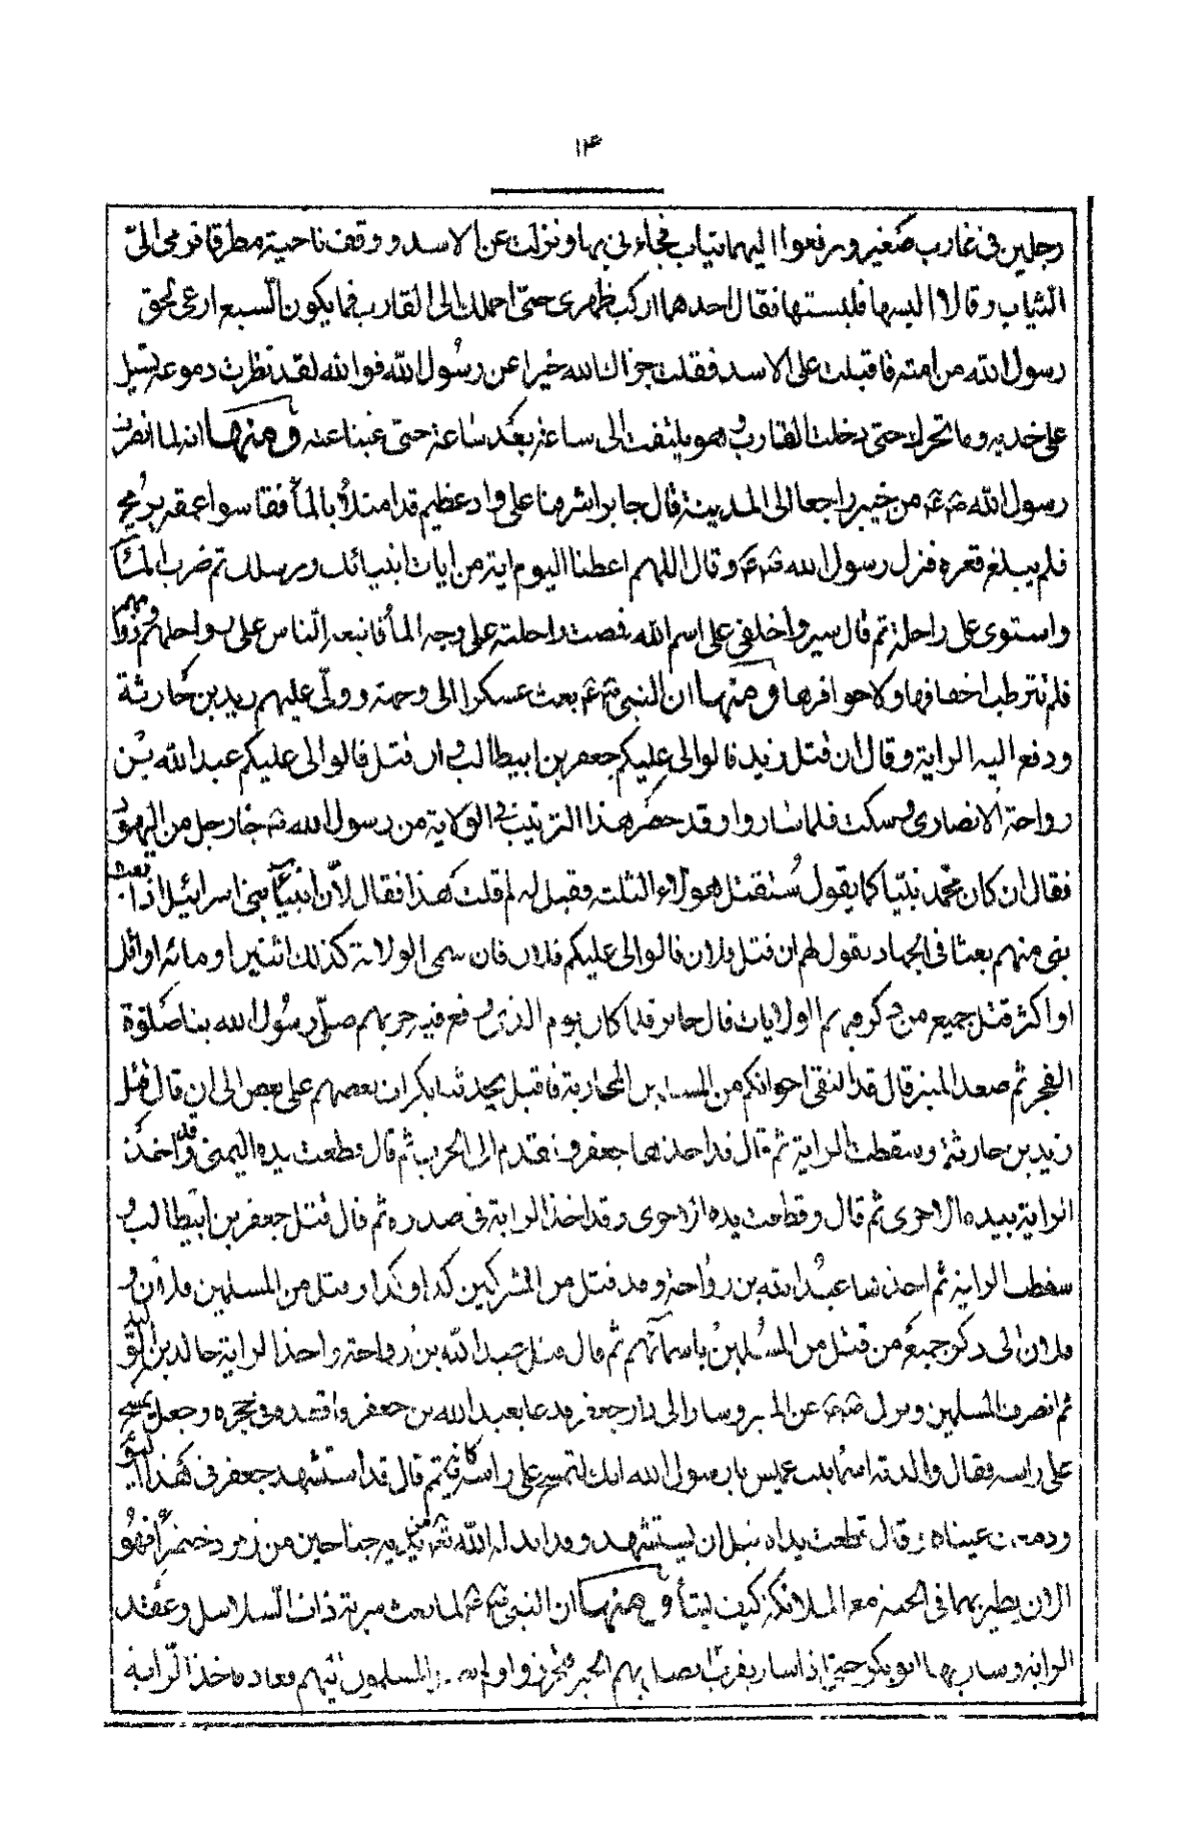 ١٣
رجلين في غارب صغير ودفعوا اليهما ثياب فجاؤني بها ونزلت عن الاسد ووقف ناحية مطرقا فرمى الىّ
الثياب وقالا البسها فلبستها فقال احدهما اركب ظهرى حتى احملك الى القارب فما يكون السبع ارعى لحق
رسول الله من امته فاقبلت على الاسد فقلت جزاك الله خيرا عن رسول الله فوالله لقد نظرت دموعه تسيل
على خديه وما تحرك حتى دخلت القارب وهو يلتفت الى ساعة بعد ساعة حتى غبنا عنه ومنها انه لما انصرف
رسول الله من خيبر راجعا الى المدينة قال جابر اشرفنا على واد عظيم قد امتلأ بالمأ فقاسوا عمقه برمح
فلم يبلغ قعره فنزل رسول الله وقال اللهم اعطنا اليوم اية من ايات انبيائك ورسلك ثم ضرب المأ
واستوى على راحلة ثم قال سيروا خلفى على اسم الله فمضت راحلته على وجه المأ فاتبعه الناس على رواحلهم ودوابهم
فلم تترطب اخفافها ولا حوافرها ومنها ان النبى بعث عسكرا الى وولّى عليهم زيد بن حارثة
ودفع اليه الراية وقال ان قتل زيد فالوالى عليكم جعفر بن ابيطالب وان قتل فالوالى عليكم عبد الله بن
رواحة الانصارى وسكت فلما ساروا وقد حضر هذا الترتيب في الولاية من رسول الله رجل من اليهود
فقال ان كان محمد نبيا كما يقول سيقتل هؤلاء الثلثة فقيل له لم قلت هذا فقال لأن انبيآء بنى اسرائيل اذا بعث
نبى منهم بعثا فى الجهاد يقول لهم ان قتل فلان فالوالى عليكم فلان فان سمى الولاية كذلك اثنين او مائة او اقل
او اكثر قتل جميع من ذكر الولايات قال جابر فلما كان يوم الذى وقع فيه حربهم صلّى رسول الله بنا صلوة
الفجر ثم صعد المنبر قال قد التقى اخوانكم من المحاربة فاقبل يحدثنا بكرات بعضهم على بعض الى ان قال قتل
زيد بن حارثة وسقطت الراية ثم قال قد اخذها جعفر وتقدم الى الحرب ثم قال قطعت يده اليمنى وقد اخذ
الراية بيده الاخرى ثم قال وقطعت يده الاخرى وقد اخذ الراية فى صدره ثم قال قتل جعفر بن ابيطالب و
سقطت الراية ثم اخذها عبد الله بن رواحة وقد قتل من المشركين كذا وكذا وقتل من المسلمين فلان و
فلان الى ذكر جميع من قتل من المسلمين باسمائهم ثم قال قتل عبد الله بن رواحة واخذ الراية خالد بن الوليد
ثم انصرف المسلمين ونزل عن المنبر وسار الى دار جعفر فدعا بعبد الله بن جعفر واقعده فى حجره وجعل يمسح
على راسه فقال والدته اسمأ بنت عميس يا رسول الله انك لتمسح على راسه كانه يتيم قال قد استشهد جعفر فى هذا اليوم
ودمعت عيناه وقال قطعت يداه قبل ان يستشهد وقد ابدله الله من يديه جناحين من زمرد خضر فهو
الان يطير بهما فى الجنة مع الملائكة كيف يشأ ومنها ان النبى لما بعث سرية ذات السلاسل وعقد
الراية وسار بها ابو بكر حتى اذا سار بقرب اتصل بهم الخبر فتحرزوا ولم المسلمون اليهم فعاد فاخذ الراية